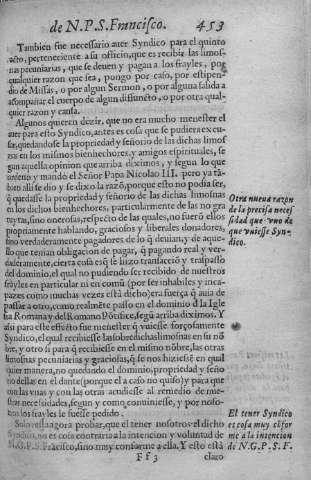 de N.P.S. Francisco. 453
Tambien fue necessario auer Syndico para el quinto
acto, perteneciente a su officio, que es recibir las limos-
nas pecuniarias, que se deuen y pagan a los frayles, por
qualquier razon que sea, pongo por caso, por estipen-
dio de Missas, o por algun Sermon, o por alguna salida a
acompañar el cuerpo de algun diffuncto, o por otra qual-
quier razon y causa.
Algunos quieren dezir, que no era mucho menester el
auer para esto Syndico, antes es cosa que se pudiera excu-
sar, quedandose la propriedad y señorio de las dichas limos
nas en los mismos bienhechores, y amigos espirituales, se
gun aquella opinion que arriba diximos, y segun lo que
ordeno y mando el Señor Papa Nicolao III. pero ya tā-
bien alli se dio y se dixo la razō, porque esto no podia ser,
q̄ quedasse la propriedad y señorio de las dichas limosnas
en los dichos bienhechores, particularmente de las no gra
tuytas, sino onerosas, respecto de las quales, no fuerō ellos
propriamente hablando, graciosos y liberales donadores,
sino verdaderamente pagadores de lo q̄ deuian, y de aque-
llo que tenian obligacion de pagar, q̄ pagando real y ver-
daderamente, cierta cosa es q̄ se hizo translacciō y traspasso
del dominio, el qual no pudiendo ser recibido de nuestros
frayles en particular ni en comū (por ser inhabiles y inca-
pazes como muchas vezes está dicho) era fuerça q̄ auia de
passar a otro, como realmēte passo en el dominio d̄ la Igle
sia Romana y del Romano Pōtifice, segū arriba diximos. Y
assi para este effecto fue menester q̄ vuiesse forçosamente
Syndico, el qual recibiesse las sobredichas limosnas en su nō
bre, y otro si para q̄ recibiesse en el mismo nōbre, las otras
limosnas pecuniarias y graciosas, q̄ se nos hiziessē en qual
quier manera, no quedando el dominio, propriedad y seño
rio dellas en el dante (porque a el caso no quiso) y para que
con las vnas y con las otras acudiesse al remedio de nues-
tras necessidades, segun y como conuiniesse, y por noso-
tros los frayles le fuesse pedido.
Solo resta agora probar, que el tener nosotros el dicho
Syndico, no es cosa contraria a la intencion y voluntad de
N.G.P.S. Frācisco, sino muy conforme a ella. Y esto está
Ff 3 claro
Otra nueua razon
de la precisa neces
sidad que vuo de
que vuiesse Syn-
dico.
El tener Syndico
es cosa muy cōfor
me a la intencion
de N.G.P.S.F.